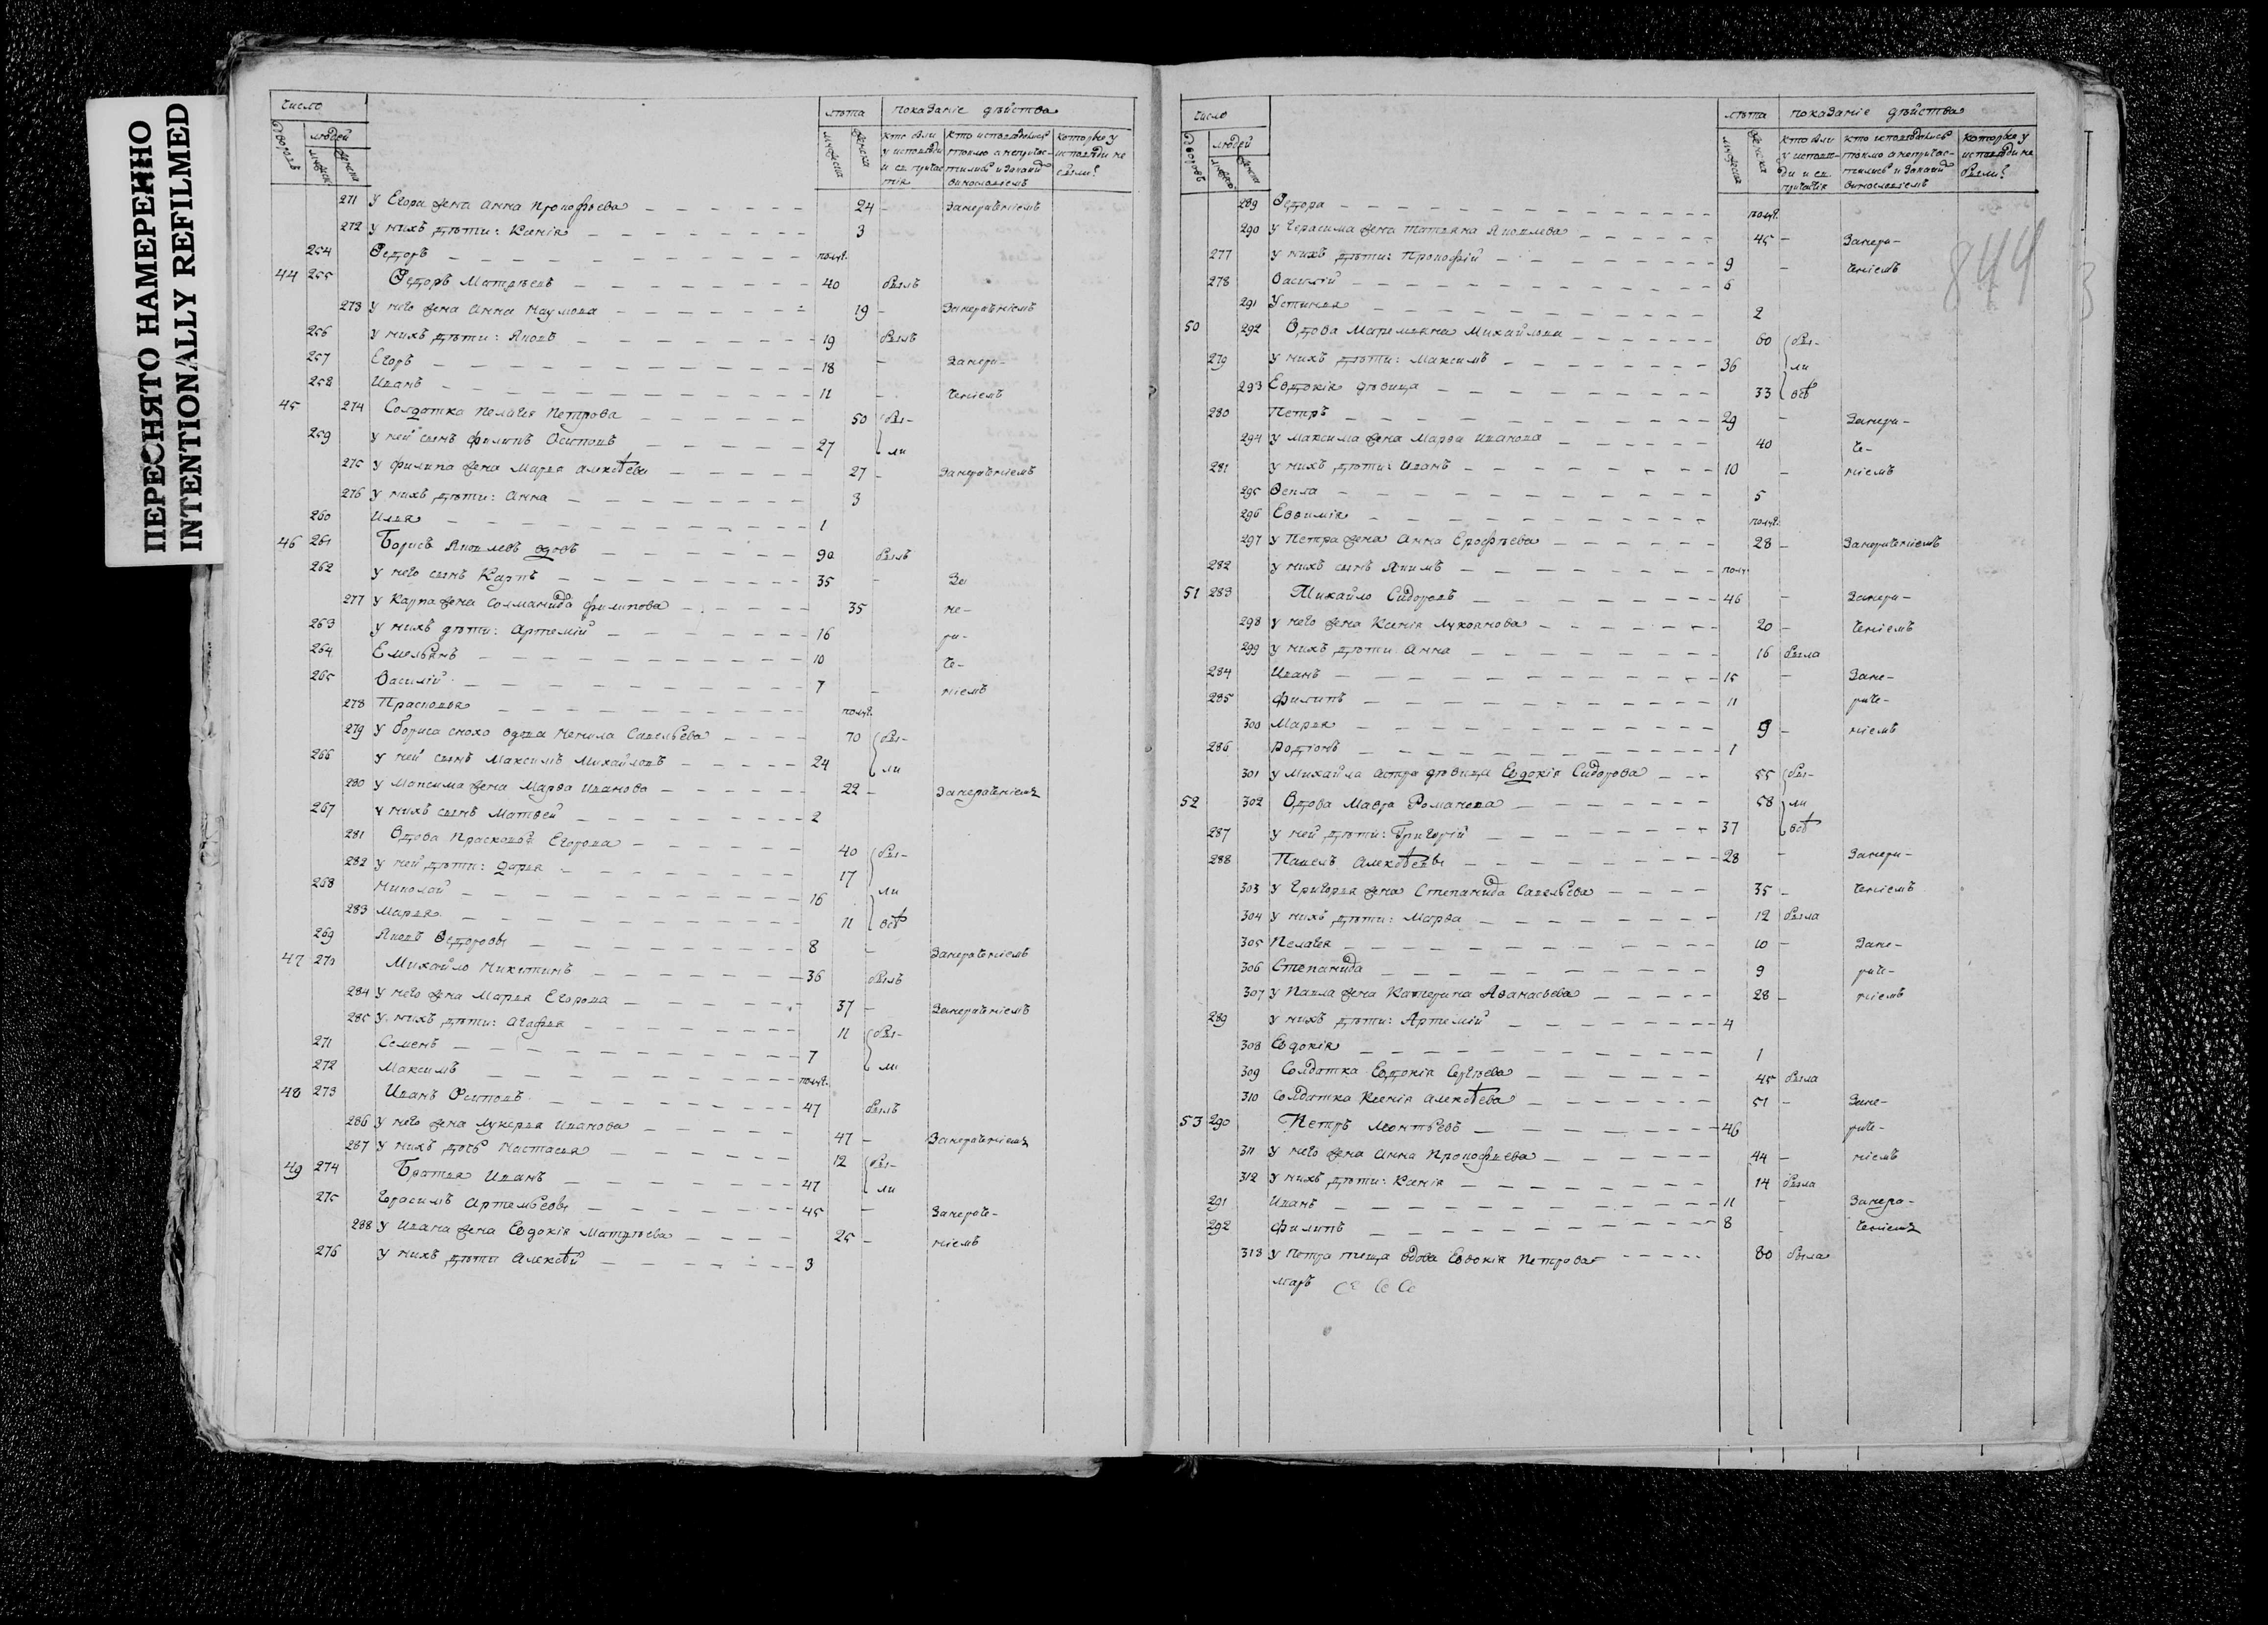 ПЕРЕСНЯТО НАМЕРЕННО
INTENTIONALLY REFILMED
число лѣта показаніе дѣйства
дворовъ людей мужеска женска кто были у исповѣди и св. причастія кто исповѣдались токмо а непричастились и за какимъ винословіемъ которые у исповѣди не были
271 У Егора жена Анна Прокофьева 24 - Занераченіемъ
272 у нихъ дѣти: Ксенія 3
254 Ѳедоръ полуг.
44 255 Ѳедоръ Матвѣевъ 40 былъ
273 у него жена Анна Наумова 19 - Занераченіемъ
256 у нихъ дѣти: Яковъ 19 былъ
257 Егоръ 18 - Занера-
258 Иванъ 11 - ченіемъ
45 274 Солдатка Пелагея Петрова 50 бы-
259 у ней сынъ Филипъ Осиповъ 27 ли
275 у Филипа жена Марья Алексѣева 27 - Занераченіемъ
276 у нихъ дѣти: Анна 3
260 Илья 1
46 261 Борисъ Яковлевъ вдовъ 90 былъ
262 у него сынъ Карпъ 35 - За
277 у Карпа жена Соломанида Филипова 35 не-
263 у нихъ дѣти: Артемій 16 ра-
264 Емельянъ 10 че-
265 Василій 7 - ніемъ
278 Прасковья полуг.
279 у Бориса сноха вдова Ненила Савельева 70 бы-
266 у ней сынъ Максимъ Михайловъ 24 ли
280 у Максима жена Марѳа Иванова 22 - Занераченіемъ
267 у нихъ сынъ Матвей 2
281 Вдова Прасковья Егорова 40 бы-
282 у ней дѣти: Дарья 17
268 Николай 16 ли
283 Марья 11 всѣ
269 Яковъ Ѳедоровъ 8 - Занераченіемъ
47 270 Михайло Никитинъ 36 былъ
284 у него жена Марья Егорова 37 - Занераченіемъ
285 у нихъ дѣти: Агафья 11 бы-
271 Семенъ 7
272 Максимъ полуг. ли
48 273 Иванъ Осиповъ 47 былъ
286 у него жена Лукерья Иванова 47 - Занераченіемъ
287 у нихъ дочь Настасья 12 бы-
49 274 Братья Иванъ 47 ли
275 Герасимъ Артемьевы 45 - Занераче-
288 у Ивана жена Евдокія Матвѣева 25 - ніемъ
276 у нихъ дѣти Алексѣй 3
число лѣта показаніе дѣйства
дворовъ людей мужеска женска кто были у исповѣди и св. причастія кто исповѣдались токмо а непричастились и за какимъ винословіемъ которые у исповѣди не были
844
3
289 Ѳедора полуг.
290 у Герасима жена Татьяна Яковлева 45 - Занера-
277 у нихъ дѣти: Прокофій 9 - ченіемъ
278 Василій 5
291 Устинья 2
50 292 Вдова Маремьяна Михайлова 60 бы-
279 у нихъ дѣти: Максимъ 36 ли
293 Евдокія дѣвица 33 всѣ
280 Петръ 29 - Занера-
294 у Максима жена Марѳа Иванова 40 че-
281 у нихъ дѣти: Иванъ 10 - ніемъ
295 Ѳекла 5
296 Евѳимія полуг.
297 у Петра жена Анна Ерофѣева 28 - Занераченіемъ
282 у нихъ сынъ Якимъ полуг.
51 283 Михайло Сидоровъ 46 - Занера-
298 у него жена Ксенія Лукоянова 20 - ченіемъ
299 у нихъ дѣти Анна 16 была
284 Иванъ 15 - Зане-
285 Филипъ 11 раче-
300 Марья 9 - ніемъ
286 Родіонъ 1
301 у Михайла сестра дѣвица Евдокія Сидорова 55 бы-
52 302 Вдова Мавра Романова 58 ли
287 у ней дѣти: Григорій 37 всѣ
288 Павелъ Алексѣевы 28 - Занера-
303 у Григорья жена Степанида Савельева 35 - ченіемъ
304 у нихъ дѣти: Марѳа 12 была
305 Пелагея 10 - Зане-
306 Степанида 9 раче-
307 у Павла жена Катерина Аѳанасьева 28 - ніемъ
289 у нихъ дѣти: Артемій 4
308 Евдокія 1
309 Солдатка Евдокія Сергѣева 45 была
310 Солдатка Ксенія Алексѣева 51 - Зане-
53 290 Петръ Леонтьевъ 46 раче-
311 у него жена Анна Прокофьева 44 - ніемъ
312 у нихъ дѣти: Ксенія 14 была
291 Иванъ 11 - Занера-
292 Филипъ 8 - ченіемъ
313 у Петра теща вдова Евдокія Петрова 80 была